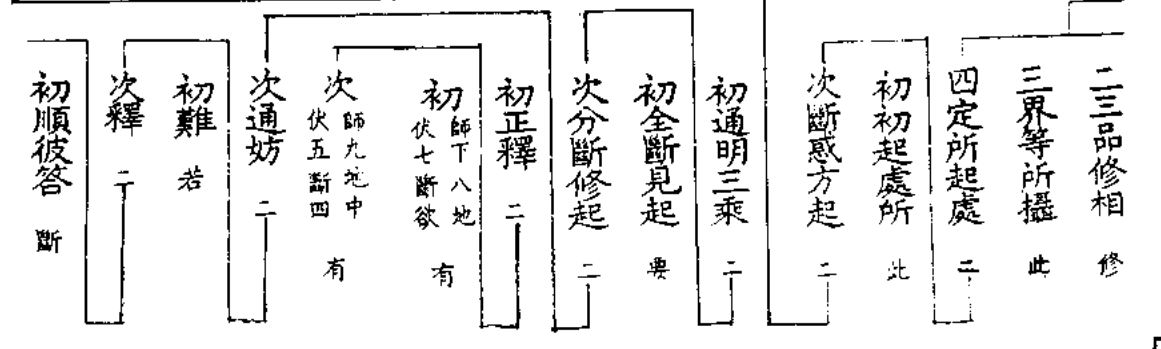 二三品修相 修
三界等所攝 此
四定所起處 二
初初起處所 此
次斷惑方起 二
初通明三乘 二
初全斷見起 要
次分斷修起 二
初正釋 二
初 師下八地
伏七斷欲 有
次 師九地中
伏五斷四 有
次通妨 二
初難 若
次釋 二
初順彼答 斷